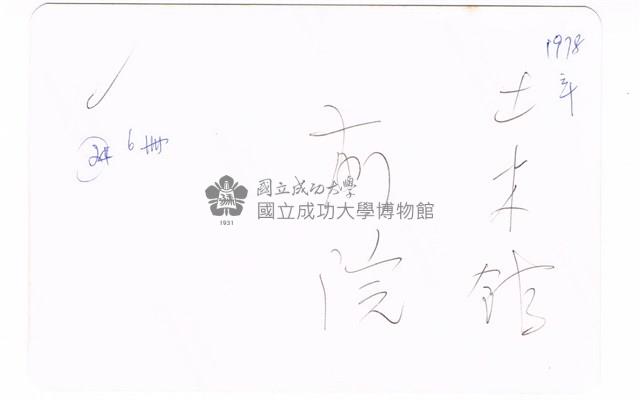 1978年
土木館
商院
6冊
國立成功大學
國立成功大學博物館
1931